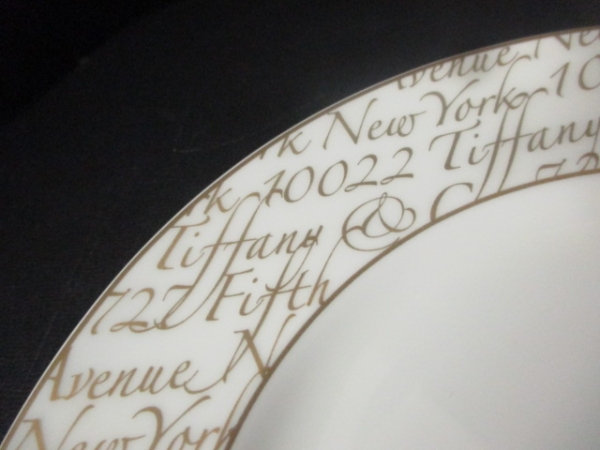 Avenue Ne
rk New York 10
rk 10022 Tiffany
Tiffany & C
727 Fifth
Avenue N
New York